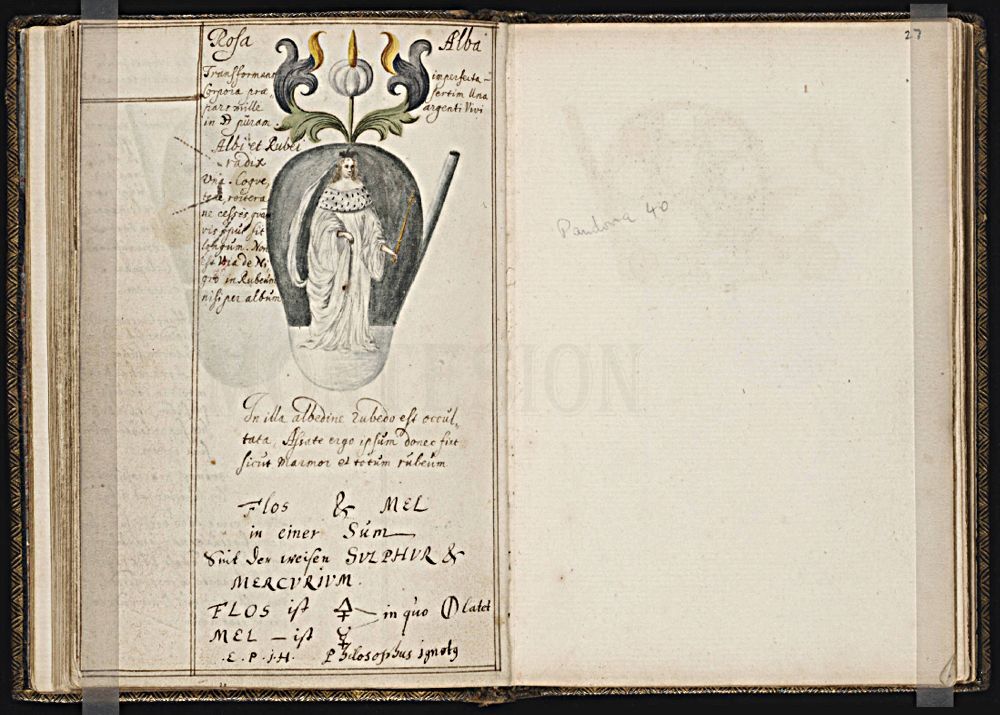 Rosa Alba
Transformans imperfecta
Corpora præ sertim Una
pars mille argenti Vivi
in ☽ puram.
Albi et Rubei
radix
Una. Coque,
ne cesses quam
vis opus sit
longum. Non
est Via de Ni
gro in Rubeum
nisi per album
In illa albedine rubedo est occul,
tata, Assate ergo ipsum donec fiet
sicut Marmor et totum rubeum
Flos & MEL
in einer Sum
Sint der weisen SVLPHVR &
MERCVRIVM.
FLOS ist 🜍 in quo latet
MEL - ist ☿
.E.P.J.H. Philosophus ignotg
27
Pandora 40